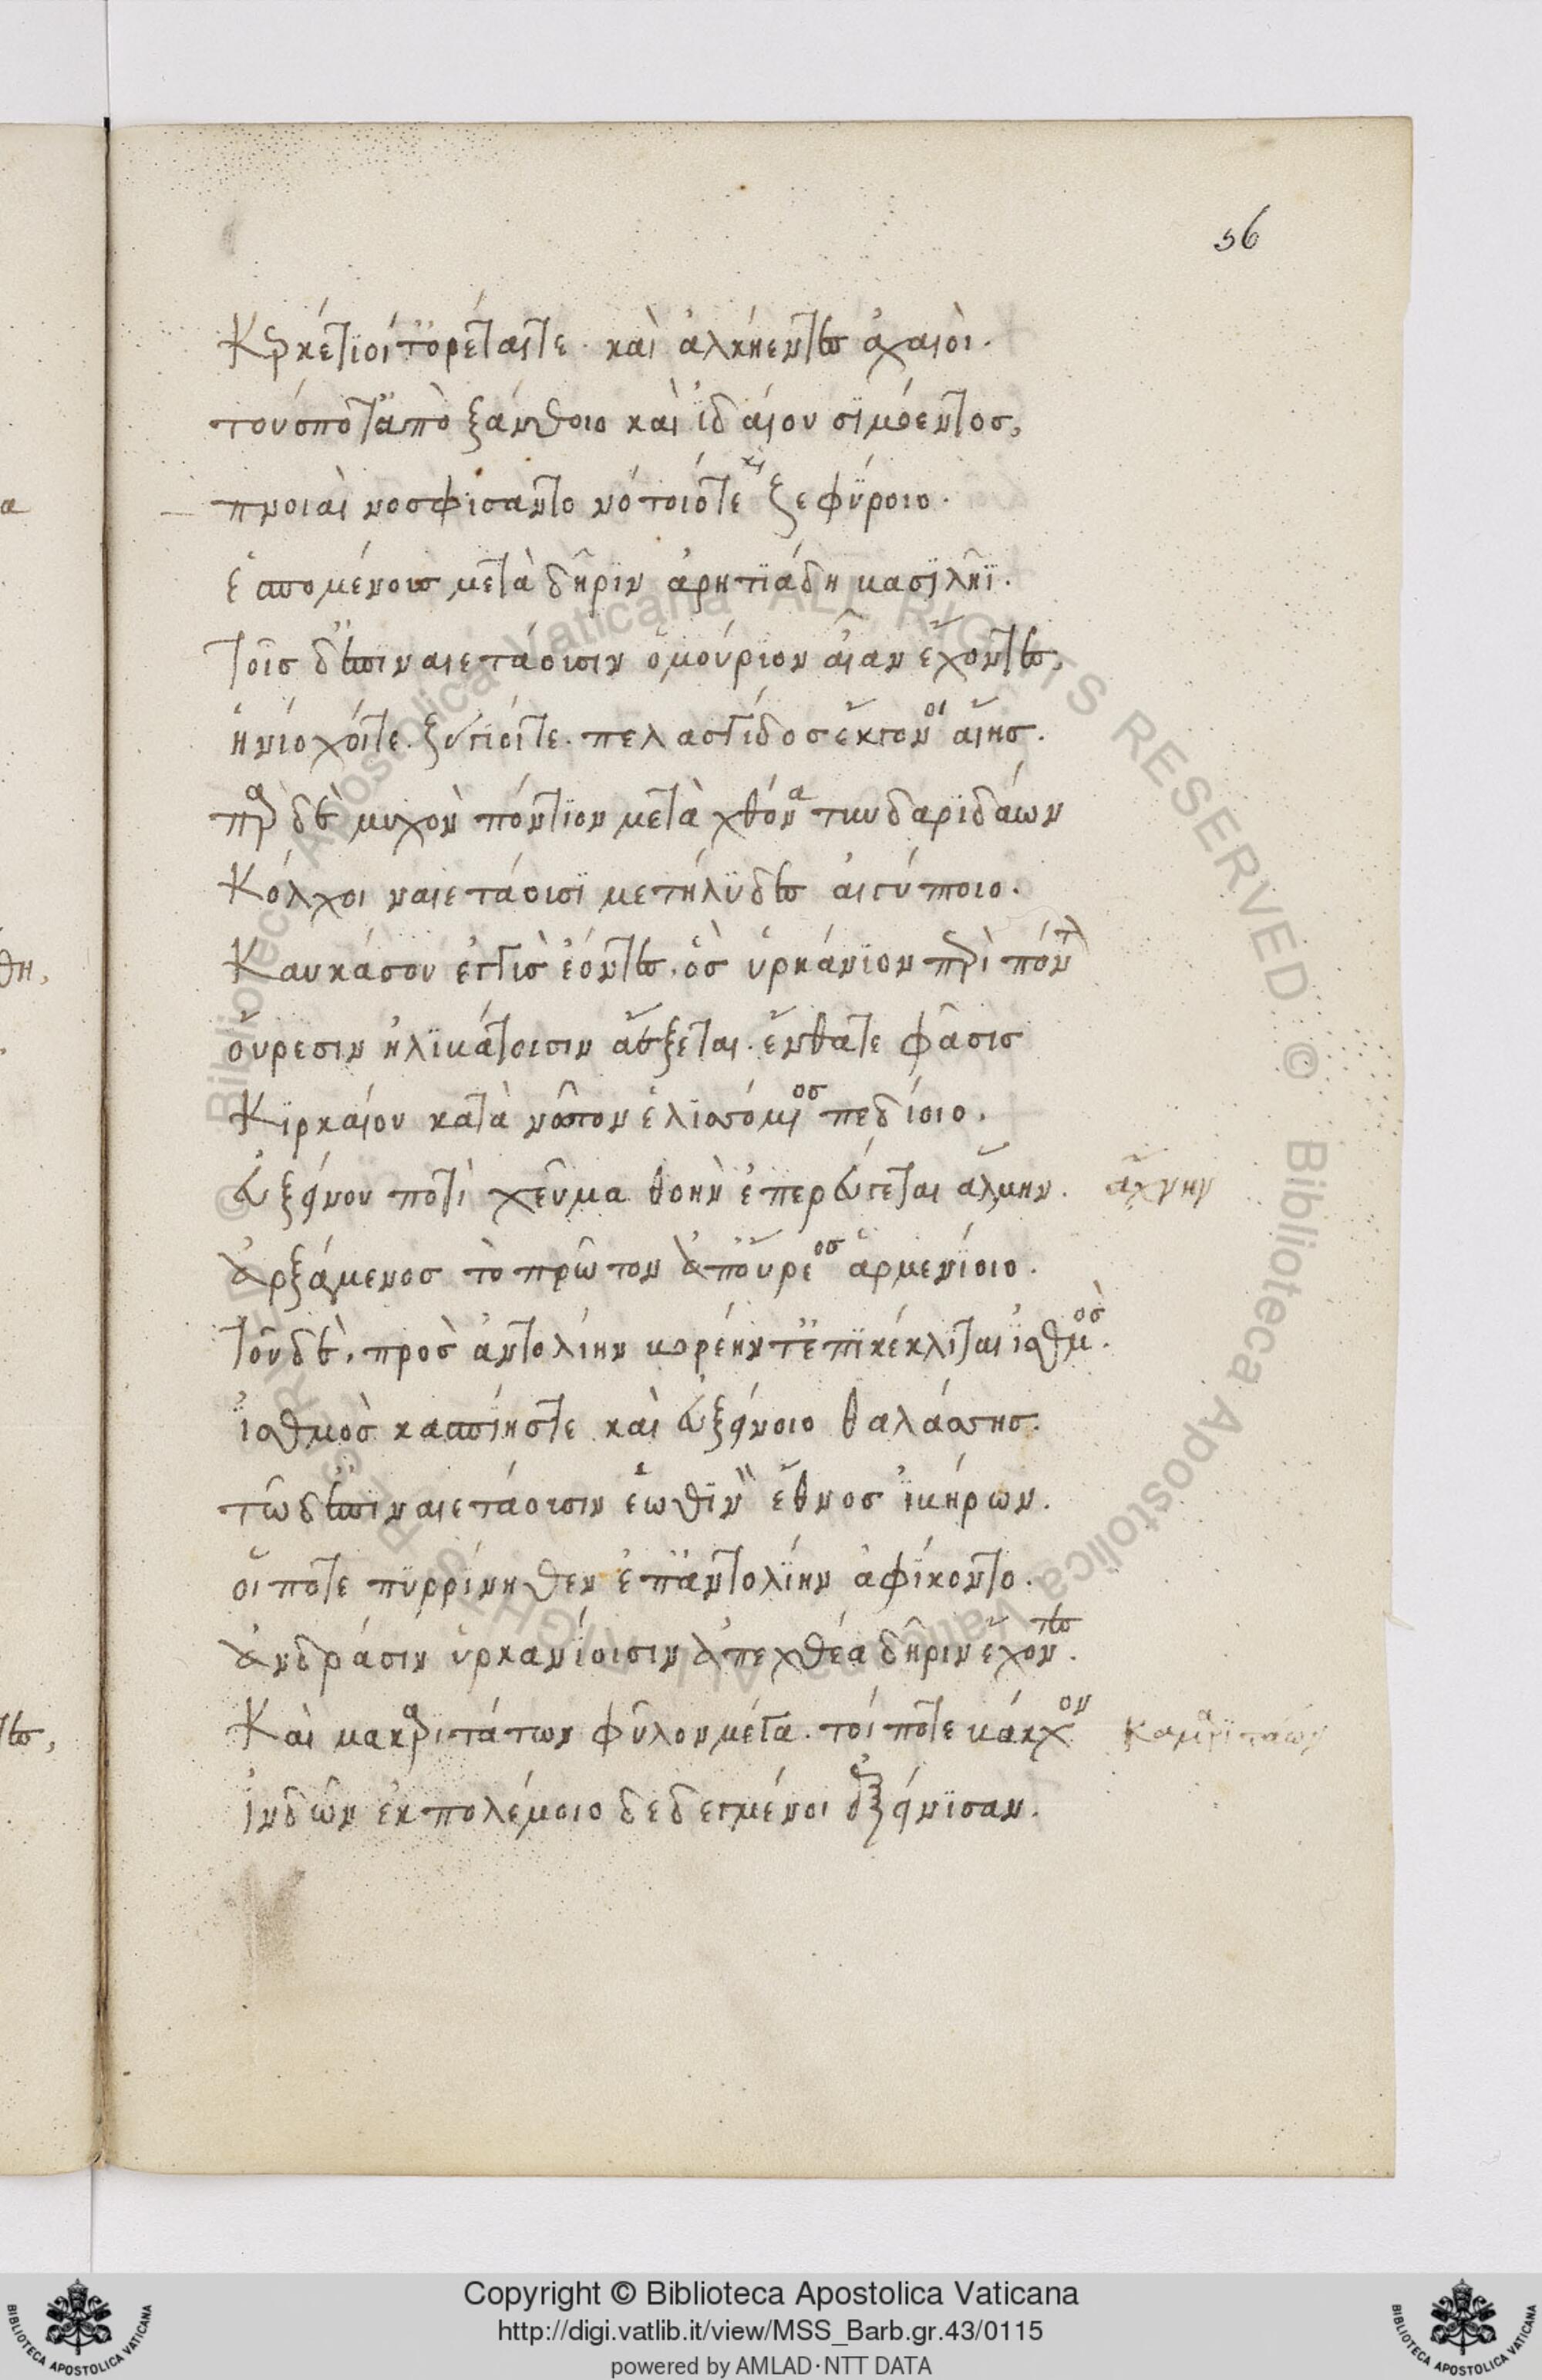 56
Κερκέτιοί τ' ὀρέται τε· καὶ ἀλκήεντες ἀχαιοὶ.
τούς ποτ' ἀπὸ ξάνθοιο καὶ ἰδαίου σιμόεντος,
πνοιαὶ νοσφίσαντο νότοιό τε κ(αὶ) ζεφύροιο.
ἑσπομένους μετὰ δῆριν ἀρητιάδη βασιλῆϊ.
τοῖς δ' ἔπι ναιετάουσιν ὁμούριον αἶαν ἔχοντες,
ἡνίοχοί τε. ζύγιοί τε. πελαστίδος ἔκγονοι αἴης.
παρ δὲ μυχὸν πόντιον μετὰ χθόνα τυνδαριδάων
Κόλχοι ναιετάουσι μετήλυδες αἰγύπτοιο.
Καυκάσου ἐγγὺς ἐόντες. ὃς ὑρκάνιον περὶ πόντ
οὔρεσιν ἠλιβάτοισιν ἀέξεται. ἔνθα τε φᾶσις
Κιρκαίου κατὰ νῶτον ἑλισσόμενος πεδίοιο.
εὐξείνου ποτὶ χεῦμα θοὴν ἐπερεύγεται ἅλμην. ἄχνην
ἀρξάμενος τὸ πρῶτον ἀπ' οὔρεος ἀρμενίοιο.
τοῦ δὲ, πρὸς ἀντολίην βορέην τ' ἐπικέκλιται ἰσθμὸς.
ἰσθμὸς κασπίης τε καὶ εὐξείνοιο θαλάσσης.
τῶ δ' ἔπι ναιετάουσιν ἑωθινὸν ἔθνος ἰβήρων.
οἵ ποτε πυρρίνηθεν ἐπ' ἀντολίην ἀφίκοντο.
ἀνδράσιν ὑρκανίοισιν ἀπεχθέα δῆριν ἔχοντες.
Καὶ μακαριτάτων φῦλον μέγα. τοί ποτε βάκχον Καμαριτάων
ἰνδῶν ἐκ πολέμοιο δεδεγμένοι ἐξείνισαν.
Copyright © Biblioteca Apostolica Vaticana
http://digi.vatlib.it/view/MSS_Barb.gr.43/0115
powered by AMLAD·NTT DATA